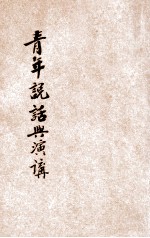 青年說話與演講